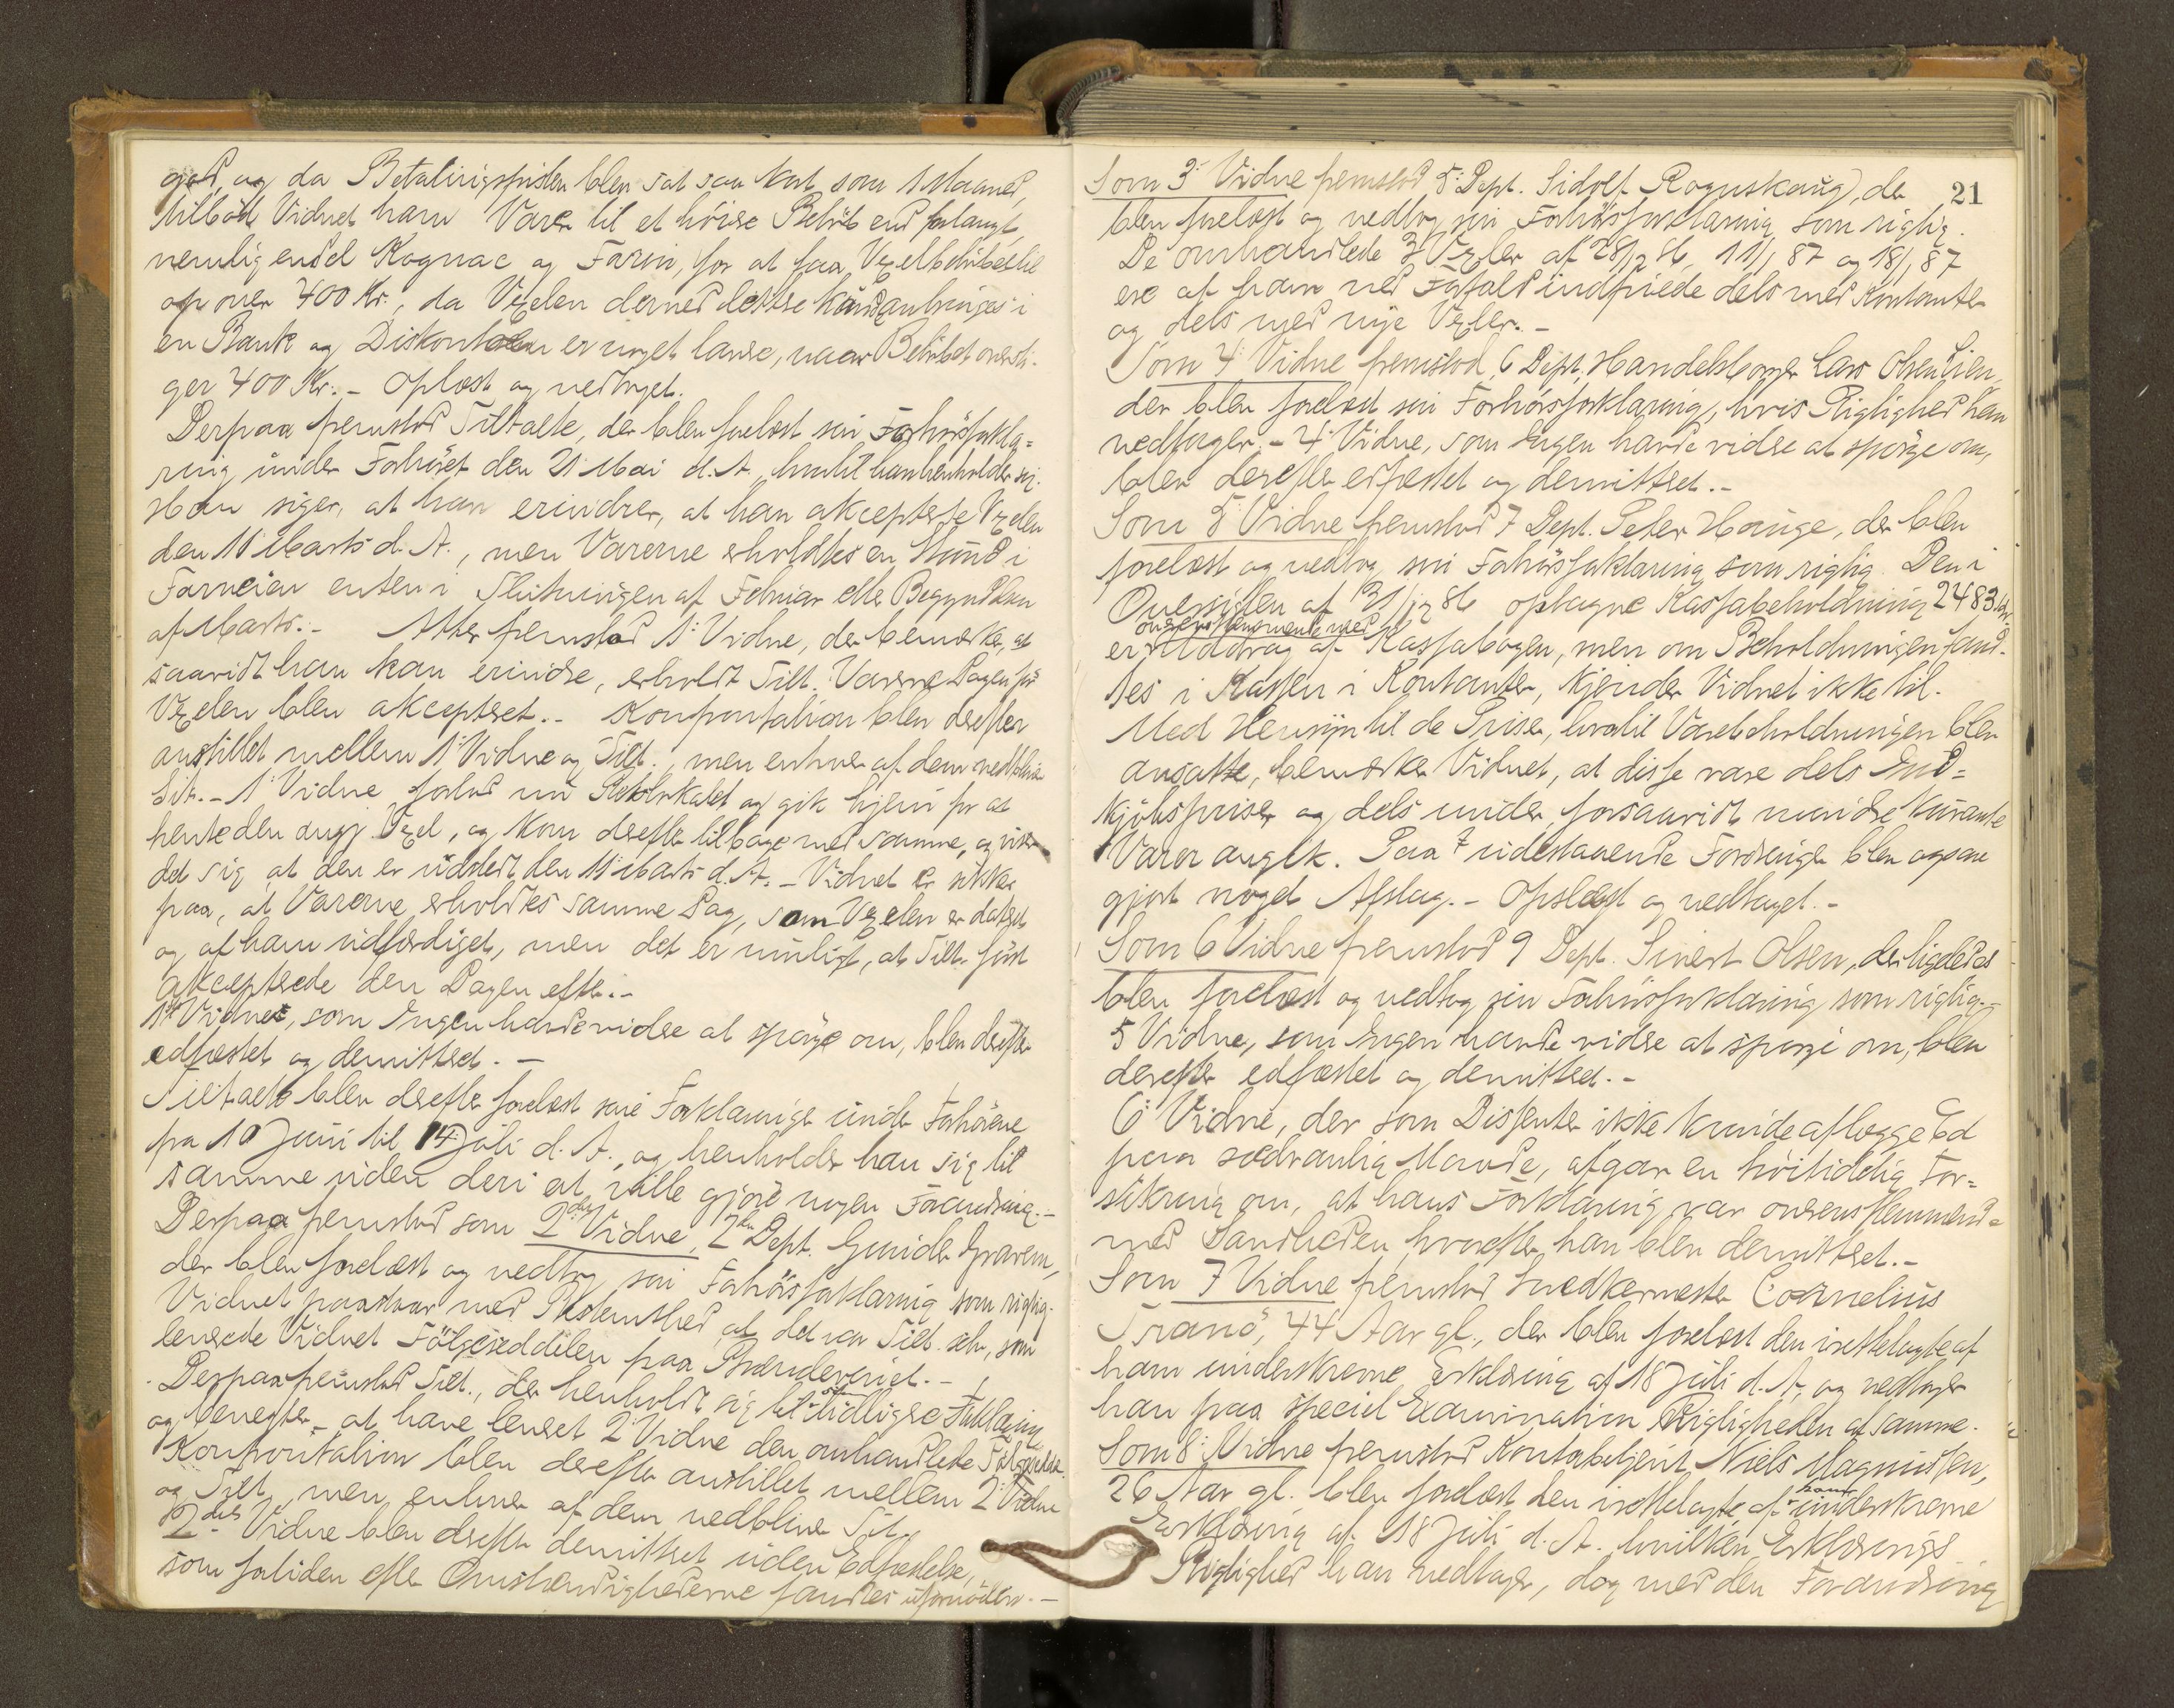 god, og da Betalingsfristen blev sat saa kort som 1 Maaned,
tilbød Vidnet ham Varer til et høiere Beløb end forlangt,
nemlig endel Kognac og Farin, for at faa Vexelbeløbet til
op over 400 Kr., da Vexelen derved lettere kunde anbringes i
en Bank og Diskontoen er noget lavere, naar Beløbet oversti-
ger 400 Kr. - Oplæst og vedtaget.
Derpaa fremstod Tiltalte, der blev forelæst sin Forhørsforkla=
ring under Forhøret den 21 Mai d. A., hvortil han henholder sig.
Han siger, at han erindrer, at han akcepterte Vexelen
den 11 Marts d. A., men Varerne erholdtes en Stund i
Forveien enten i Slutningen af Februar eller Begyndelsen
af Marts. - Atter fremstod 1' Vidne, der bemærker, at
saavidt han kan erindre, erholdt Tilt. Varerne Dagen før
Vexelen blev akcepteret. - Konfrontation blev derefter
anstillet mellem 1' Vidne og Tilt., men enhver af dem vedblev
Sit. - 1' Vidne forlod nu Retslokalet og gik hjem for at
hente den angj. Vexel, og kom derefter tilbage med samme, og viser
det sig, at den er udstedt den 11 Marts d. A. - Vidnet er sikker
paa, at Varerne erholdtes samme Dag, som Vexelen er dateret
og af ham udfærdiget, men det er muligt, at Tilt. først
akcepterede den Dagen efter. -
1ste Vidne, som Ingen havde videre at spørge om, blev derefter
edfæstet og demitteret. -
Tiltalte blev derefter forelæst sine Forklaringer under Forhørene
fra 10 Juni til 14 Juli d. A., og henholder han sig til
samme uden deri at ville gjøre nogen Forandring. -
Derpaa fremstod som 2det Vidne, 2den Dept. Gunder Gravem,
der blev forelæst og vedtog sin Forhørsforklaring som rigtig.
Vidnet paastaar med Bestemthed at det var Tilt. selv, som
leverede Vidnet Følgeseddelen paa Brænderiet. -
Derpaa fremstod Tilt., der henholdt sig til sin tidligere Forklaring
og benegter at have leveret 2' Vidne den omhandlede Følgeseddel.
Konfrontation blev derefter anstillet mellem 2' Vidne
og Tilt., men enhver af dem vedblive Sit.
2det Vidne blev derefter demitteret uden Edfæstelse,
som fortiden efter Omstændighederne fandtes ufornøden. -
21
Som 3' Vidne fremstod 5' Dept. Sidolf Rognskaug, der
blev forelæst og vedtog sin Forhørsforklaring som rigtig.
De omhandlede 3 Vexler af 28/12 86, 11/1 87 og 18/1 87
ere af ham ved Forfald indfriede dels med Kontanter
og dels med nye Vexler. -
Som 4' Vidne fremstod 6 Dept. Handelsborger Lars Olsen Lien,
der blev forelæst sin Forhørsforklaring, hvis Rigtighed han
vedtager. - 4' Vidne, som Ingen havde videre at spørge om,
blev derefter edfæstet og demitteret. -
Som 5' Vidne fremstod 7 Dept. Peter Hauge, der blev
forelæst og vedtog sin Forhørsforklaring som rigtig. Den i
Oversigten af 31/12 86 optagne Kassabeholdning 2483 Kr.
overensstemmende med
er Uddrag af Kassabogen, men om Beholdningen fand-
tes i Kassen i Kontanter, kjender Vidnet ikke til.
Med Hensyn til de Priser, hvortil Varebeholdningen blev
ansatte, bemærker Vidnet, at disse vare dels Ind=
kjøbspriser og dels under, forsaavidt mindre kurante
Varer angik. Paa udestaaende Fordringer blev ogsaa
gjort noget Afslag. - Oplæst og vedtaget. -
Som 6 Vidne fremstod 9 Dept. Sivert Olsen, der ligeledes
blev forelæst og vedtog sin Forhørsforklaring som rigtig. -
5 Vidne, som Ingen havde videre at spørge om, blev
derefter edfæstet og demitteret. -
6' Vidne, der som Dissenter ikke kunde aflægge Ed
paa sædvanlig Maade, afgav en høitidelig For=
sikring om, at hans Forklaring var overensstemmende
med Sandheden, hvorefter han blev demitteret. -
Som 7 Vidne fremstod Snedkermester Cornelius
Tranø, 44 Aar gl., der blev forelæst den irettelagte af
ham underskrevne Erklæring af 18 Juli d. A., og vedtager
han paa speciel Examination Rigtigheden af samme.
Som 8' Vidne fremstod Kontorbetjent Niels Magnussen,
26 Aar gl. blev forelæst den irettelagte af ham underskrevne
Erklæring af 18 Juli d. A. hvilken Erklærings
Rigtighed han vedtager, dog med den Forandring